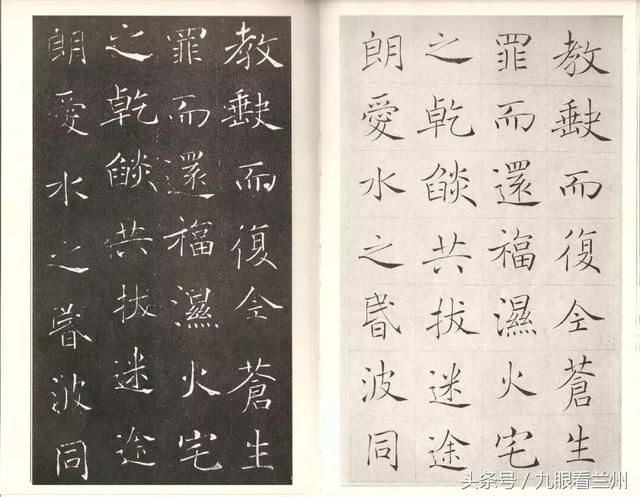 教缺而復全蒼生
罪而還福濕火宅
之乾燄共拔迷途
朗愛水之昬波同
教缺而復全蒼生
罪而還福濕火宅
之乾燄共拔迷途
朗愛水之昬波同
头条号／九眼看兰州